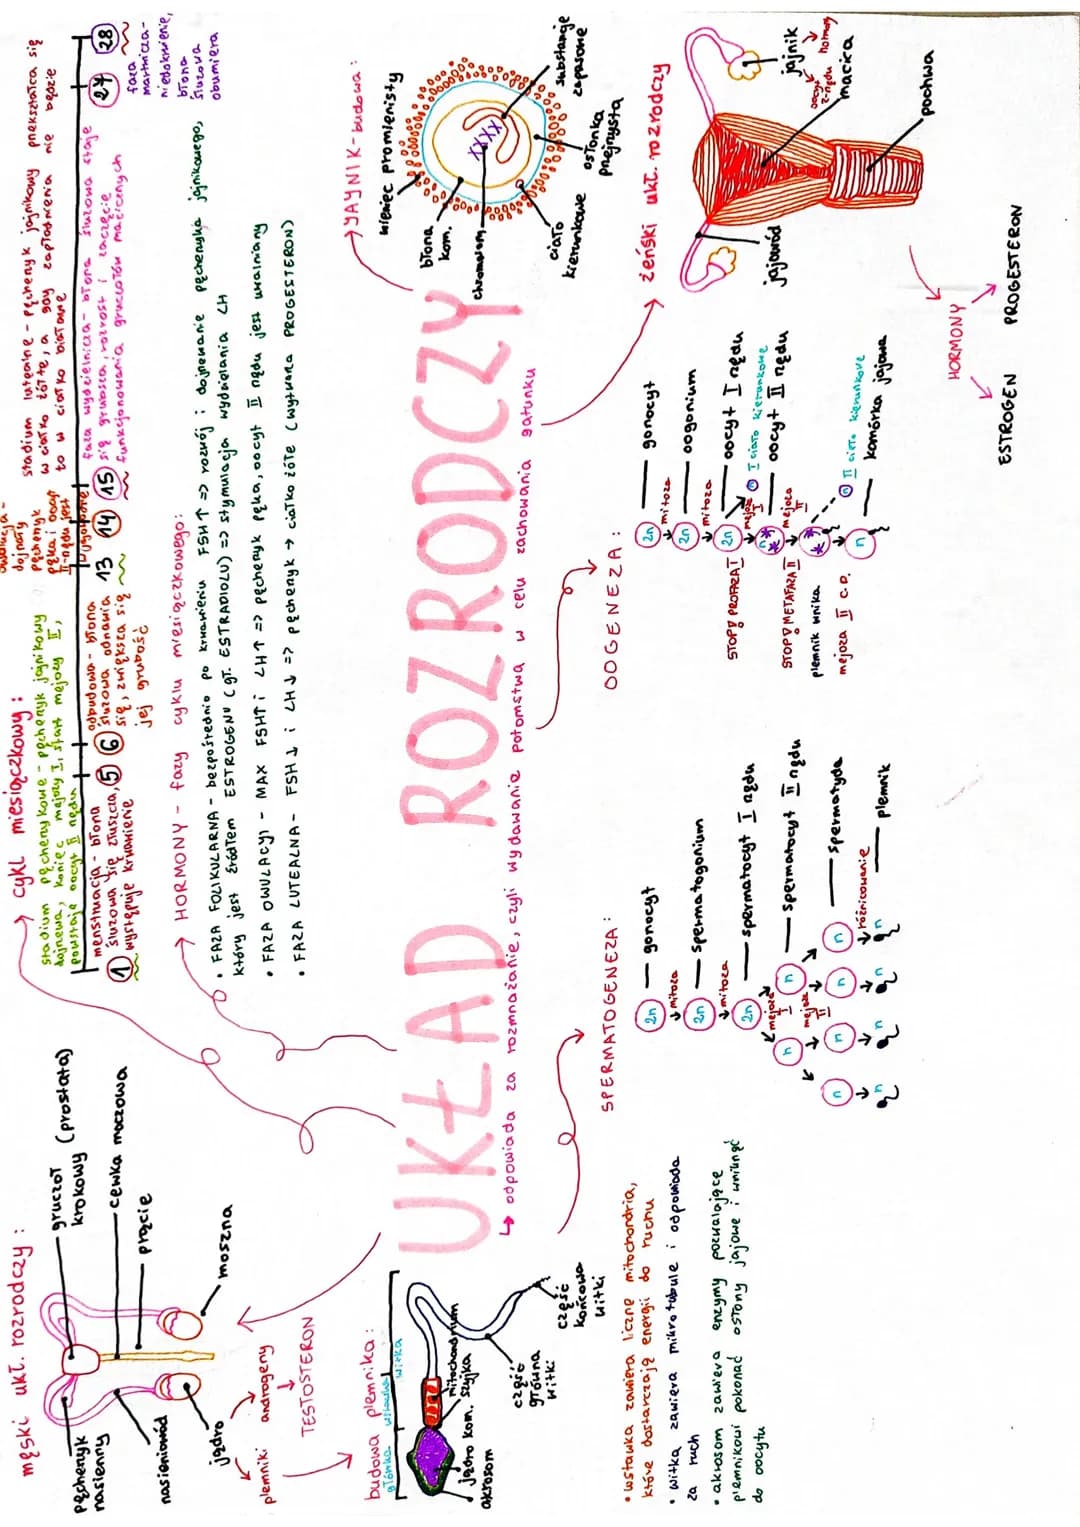 męski ukł. rozrodczy :
pęcherzyk
nasienny
gruczoł
krokowy (prostata)
cewka moczowa
prącie
nasieniowód
jądro
moszna
plemniki
androgeny
TESTOSTERON
cykl miesiączkowy :
stadium pęcherzykowe - pęcherzyk jajnikowy
dojrzewa, koniec mejozy I, start mejozy II,
powstaje oocyt II rzędu
owulacja -
dojrzały
pęcherzyk
pęka i oocyt
II-rzędu jest
stadium lutealne - pęcherzyk jajnikowy przekształca się
w ciałko żółte, a gdy zapłodnienia nie będzie
to w ciałko białawe
1
menstruacja - błona
śluzowa się złuszcza,
występuje krwawienie
5 6
odbudowa - błona
śluzowa odnawia
się, zwiększa się
jej grubość
13 14 15
faza wydzielnicza - błona śluzowa staje
się grubsza, rozrost i zaczęcie
funkcjonowania gruczołów macicznych
27 28
faza
maciczna -
niedokrwienie,
błona
śluzowa
obumiera
HORMONY - fazy cyklu miesiączkowego:
• FAZA FOLIKULARNA - bezpośrednio po krwawieniu FSH↑ => rozwój i dojrzewanie pęcherzyka jajnikowego,
który jest źródłem ESTROGENU (gł. ESTRADIOLU) => stymulacja wydzielania LH
• FAZA OWULACYJ - MAX FSH↑ i LH↑ => pęcherzyk pęka, oocyt II rzędu jest uwalniany
• FAZA LUTEALNA - FSH↓ i LH↓ => pęcherzyk → ciałko żółte (wytwarza PROGESTERON)
JAJNIK - budowa :
wieniec promienisty
błona
kom.
chromosomy
ciało
kierunkowe
osłonka
przejrzysta
substancje
zapasowe
UKŁAD ROZRODCZY
↳ odpowiada za rozmnażanie, czyli wydawanie potomstwa w celu zachowania gatunku
budowa plemnika :
główka
wstawka
witka
mitochondrium
szyjka
jądro kom.
akrosom
część
główna
witki
część
końcowa
witki
• wstawka zawiera liczne mitochondria,
które dostarczają energii do ruchu
• witka zawiera mikrotubule i odpowiada
za ruch
• akrosom zawiera enzymy pozwalające
plemnikowi pokonać osłony jajowe i wniknąć
do oocytu
SPERMATOGENEZA :
2n gonocyt
mitoza
2n spermatogonium
mitoza
2n spermatocyt I rzędu
mejoza
I
n n spermatocyt II rzędu
mejoza
II
n n n n spermatyda
różnicowanie
n n n n plemnik
OOGENEZA :
2n gonocyt
mitoza
2n oogonium
mitoza
STOP PROFAZA I
2n oocyt I rzędu
mejoza I
I ciało kierunkowe
STOP METAFAZA II
n oocyt II rzędu
mejoza
II
plemnik wnika
mejoza II c.d.
II ciało kierunkowe
n komórka jajowa
żeński ukł. rozrodczy
jajowód
jajnik
oocyt
II-rzędu
hormony
macica
pochwa
HORMONY
ESTROGEN
PROGESTERON